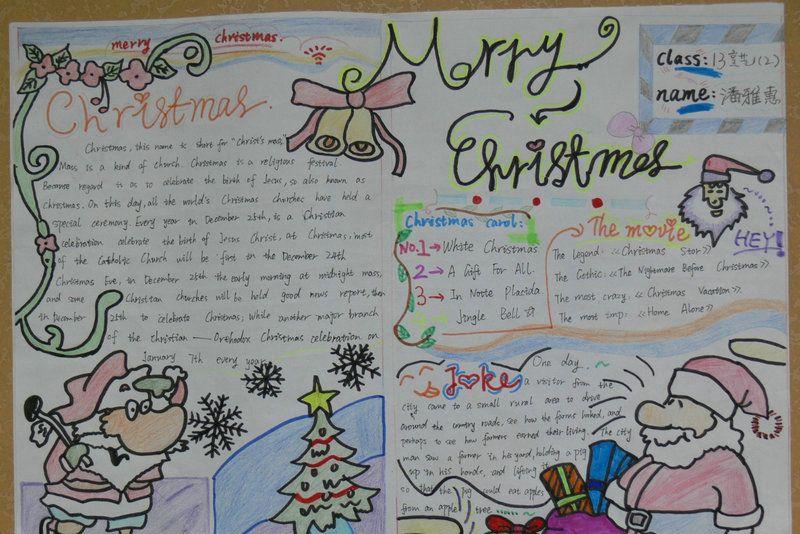 merry christmas.
Christmas.
Christmas, this name is short for "Christ's mas,"
Mass is a kind of church. Christmas is a religious festival.
Because regard it as to celebrate the birth of Jesus, so also known as
christmas. On this day, all the world's Christmas churches have held a
special ceremony. Every year in December 25th, is a Christian
celebration celebrate the birth of Jesus Christ, at Christmas. most
of the Catholic Church will be first in the December 24th
Christmas Eve, in December 25th the early morning at midnight mass,
and some Christian churches will be held good news report, then
in December 25th to celebrate Christmas; While another major branch
of the christian — Orthodox Christmas celebration on
January 7th every year.
Merry
Christmas
class: 13 (2)
name: 潘雅惠
HEY!
Christmas carol:
NO.1→ White Christmas
2→ A Gift For All
3→ In Notte Placida
4→ Jingle Bell
The movie
The Legend: 《Christmas Star》
The Gothic: 《The Nightmare Before Christmas》
The most crazy: 《Christmas Vacation》
The most imp: 《Home Alone》
Joke
One day,
a visitor from the
city came to a small rural area to drive
around the country roads, see how the farms looked, and
perhaps to see how farmers earned their living. The city
man saw a farmer in his yard, holding a pig
up in his hands, and lifting it
so that the pig could eat apples
from an apple tree